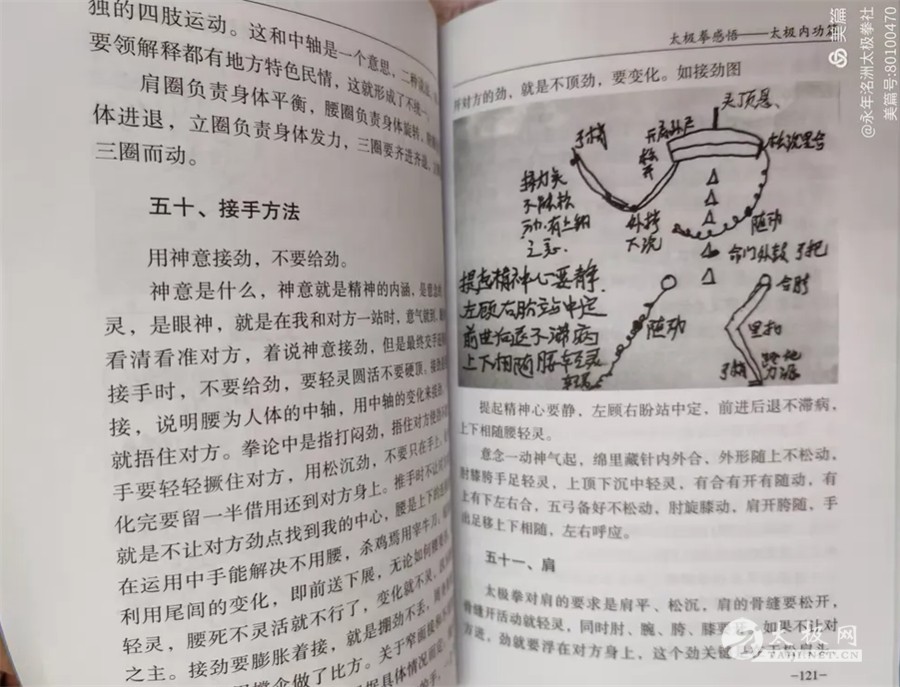 独的四肢运动。这和中轴是一个意思,二种
要领解释都有地方特色民情,这就形成了不统一。
肩圈负责身体平衡,腰圈负责身体旋转,
体进退,立圈负责身体发力,三圈要齐进齐退,
三圈而动。
五十、接手方法
用神意接劲,不要给劲。
神意是什么,神意就是精神的内涵,是意念的
灵,是眼神,就是在我和对方一站时,意气就到,
看清看准对方,着说神意接劲,但是最终交手还
接手时,不要给劲,要轻灵圆活不要硬顶,接
接,说明腰为人体的中轴,用中轴的变化来
就捂住对方。拳论中是指打闷劲,捂住对方使
手要轻轻撅住对方,用松沉劲,不要只在手上,
化完要留一半借用还到对方身上。推手时不让
就是不让对方劲点找到我的中心,腰是上下的
在运用中手能解决不用腰,杀鸡焉用宰牛刀,
利用尾闾的变化,即前送下展,无论如何
轻灵,腰死不灵活就不行了,变化就不灵,
之主。接劲要膨胀着接,就是掤劲不丢,
撑伞做了比方。关于窄面积和
具体情况而定,
太极拳感悟——太极内功篇
对方的劲,就是不顶劲,要变化。如接劲图
灵顶悬、
弓梢
松沉里合
不
外掤
下沉
随动
命门外鼓 弓把
提起精神心要静.
左顾右盼站中定
前进后退不滞病
上下相随腰轻灵
随动
合膀
里扣
弓梢
提起精神心要静,左顾右盼站中定,前进后退不滞病,
上下相随腰轻灵。
意念一动神气起,绵里藏针内外合、外形随上不松动,
肘膝膀手足轻灵,上顶下沉中轻灵,有合有开有随动,有
上有下左右合,五弓备好不松动,肘旋膝动,肩开胯随,手
出足移上下相随,左右呼应。
五十一、肩
太极拳对肩的要求是肩平、松沉,肩的骨缝要松开,
骨缝开活动就轻灵,同时肘、腕、胯、膝
如果不让对
方进,劲就要浮在对方身上,这个劲关键
-121-
太极网
WWW.TAIJI.NET.CN
美篇
@永年洺洲太极拳社
美篇号:80100470